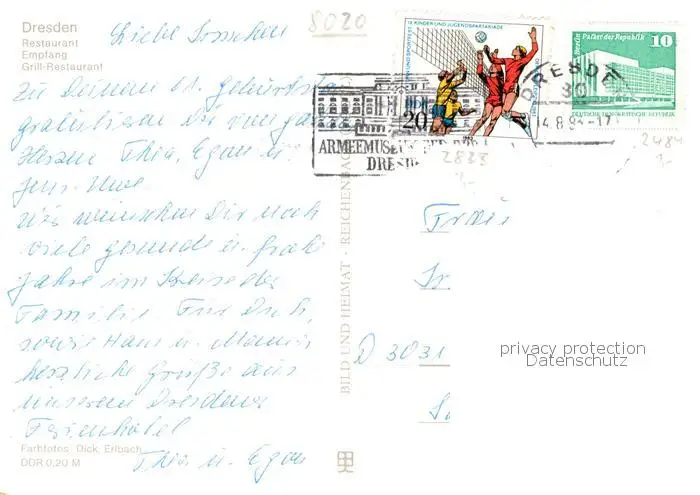 Dresden
Restaurant
Empfang
Grill-Restaurant
Liebe
8020
Zu Deinem 61. Geburtstag
gratulieren Dir von ganzem
Herzen Thea, Egon u.
Jens-Uwe.
Wir wünschen Dir noch
viele gesunde u. frohe
Jahre im Kreise der
Familie. Für Dich,
sowie Hans u.
herzliche Grüße aus
unserem Dresdener
Ferienhotel
Thea u. Egon
Farbfotos: Dick, Erlbach
DDR 0,20 M
BILD UND HEIMAT · REICHENBACH
KINDER UND JUGENDSPARTAKIADE
DDR
20
Berlin Palast der Republik
10
DEUTSCHE DEMOKRATISCHE REPUBLIK
ARMEEMUSEUM DER DDR
DRESDEN
DRESDEN
30
2823
2484
Frau
D 3031
privacy protection
Datenschutz